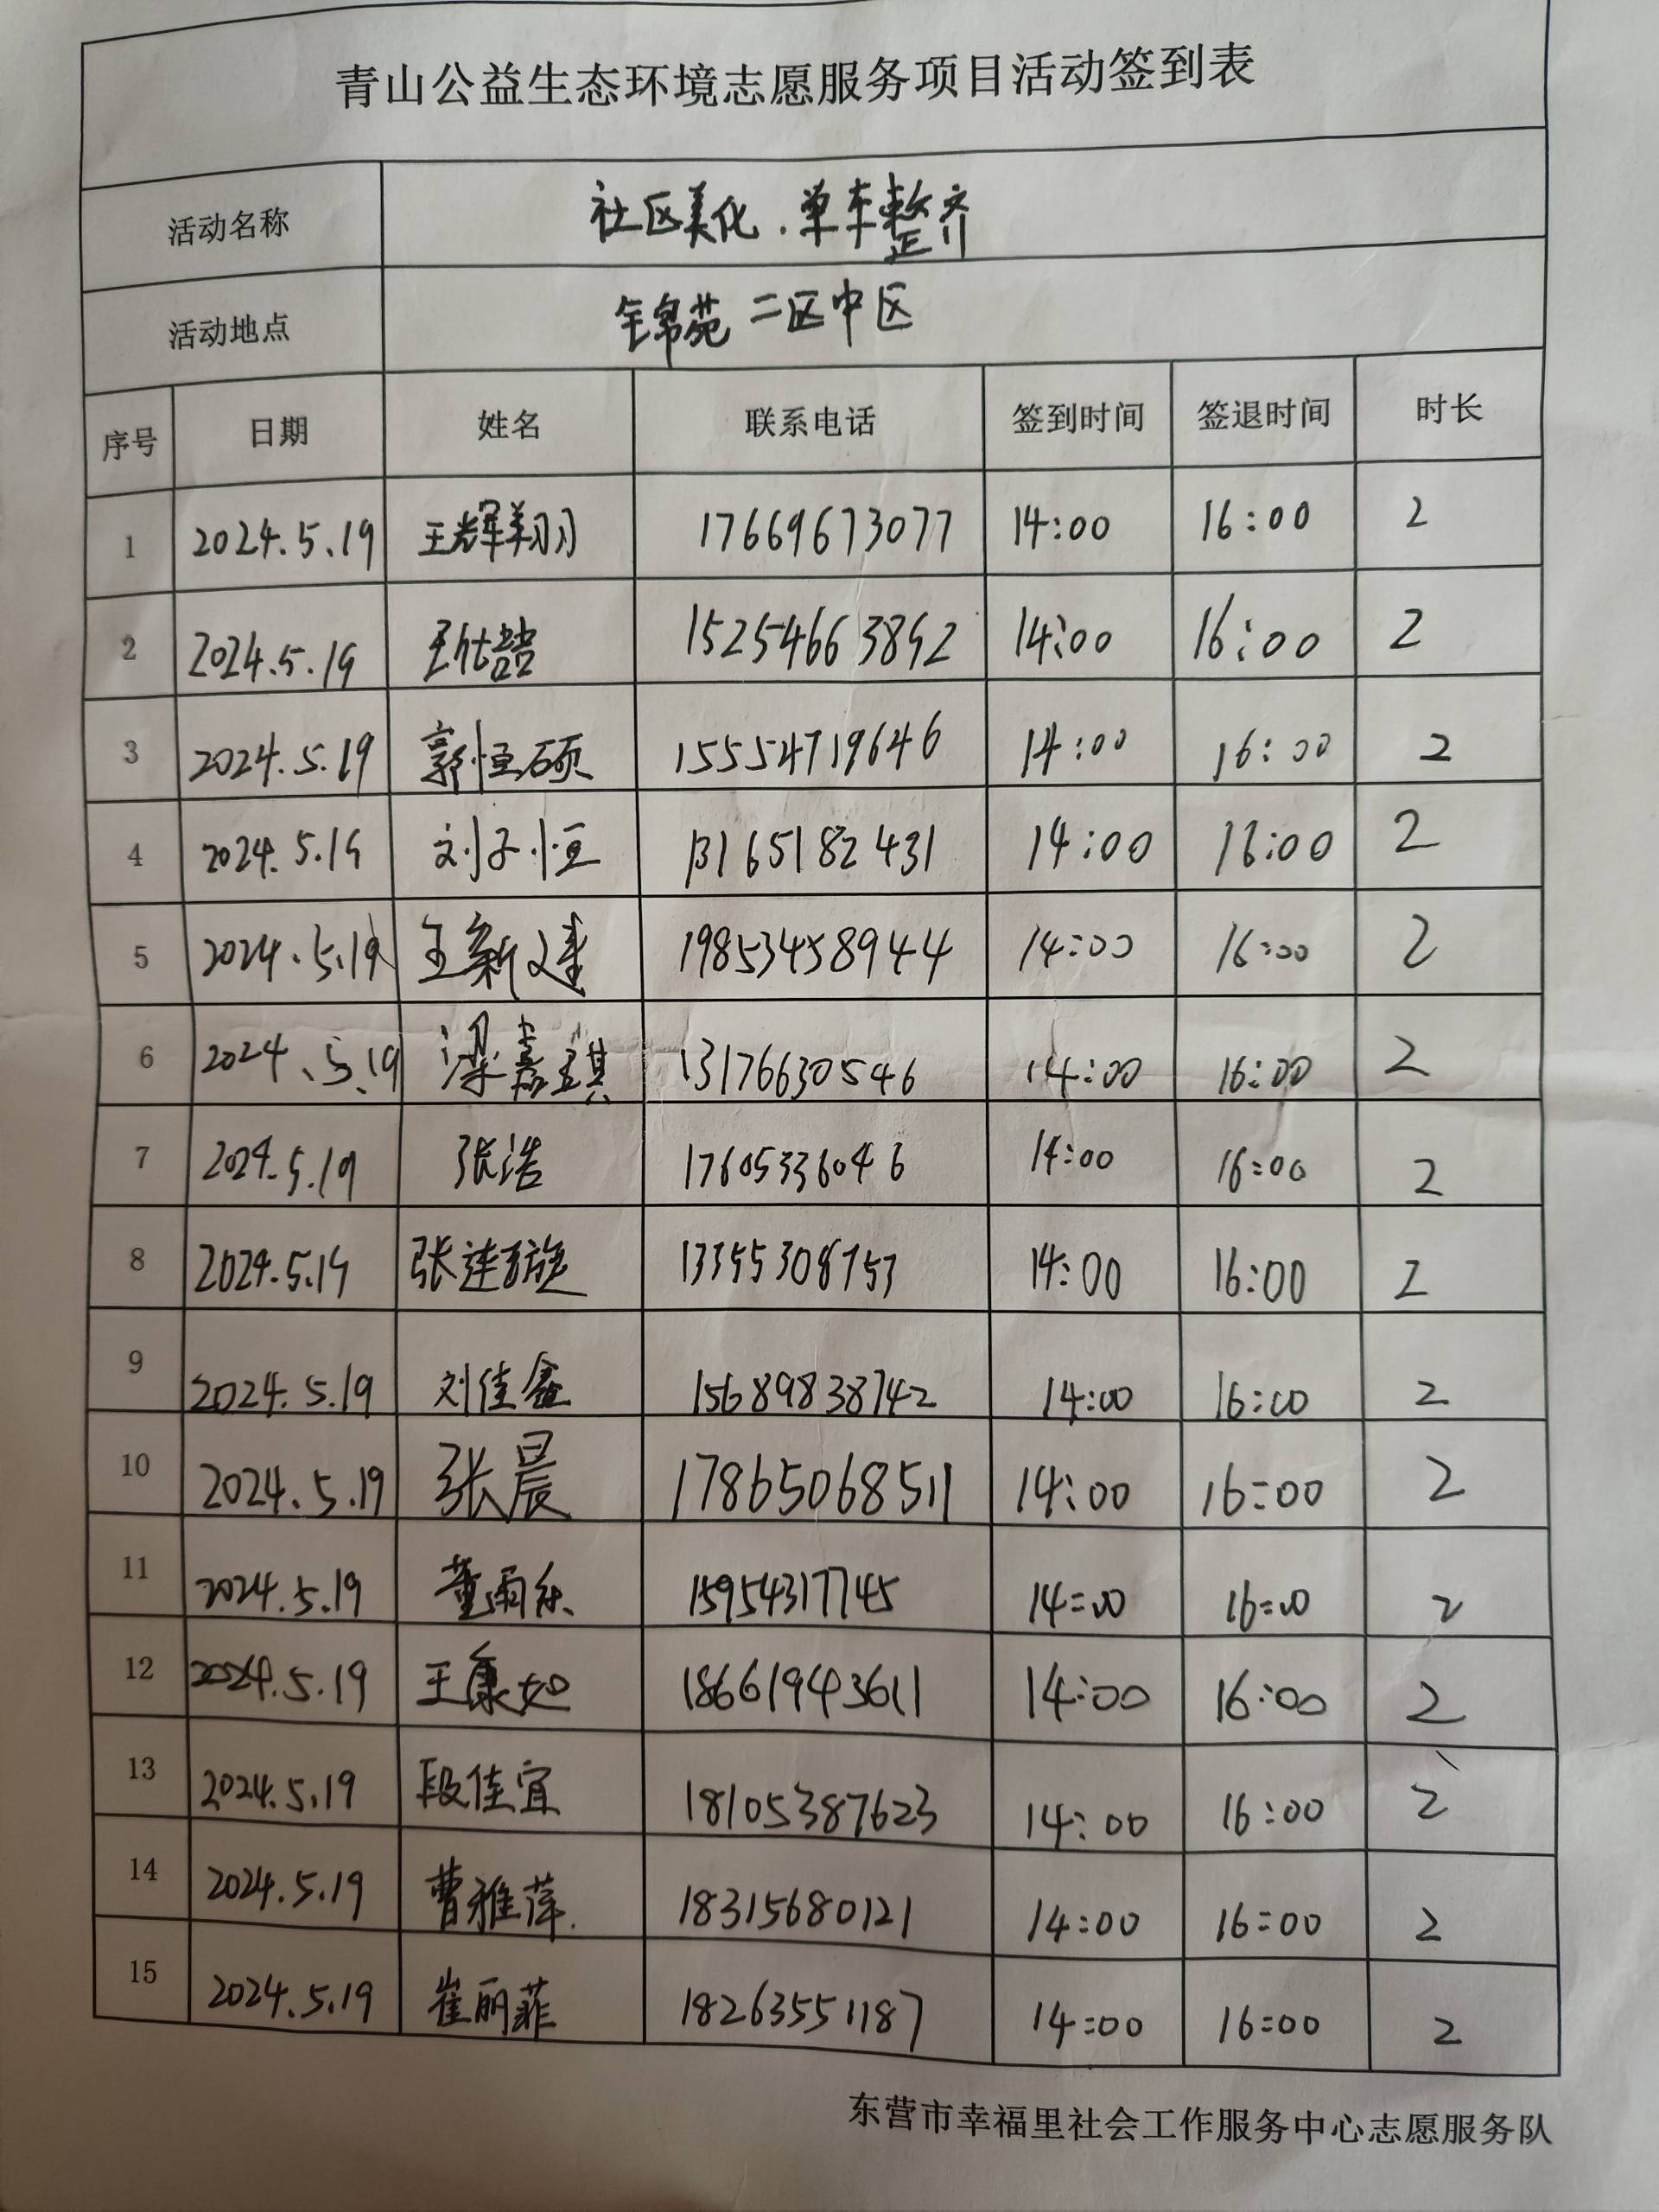 青山公益生态环境志愿服务项目活动签到表
活动名称 社区美化.单车整齐
活动地点 锦苑二区中区
序号 日期 姓名 联系电话 签到时间 签退时间 时长
1 2024.5.19 王辉翔 17669673077 14:00 16:00 2
2 2024.5.19 王仕喆 15254663892 14:00 16:00 2
3 2024.5.19 郭恒硕 15554719646 14:00 16:00 2
4 2024.5.19 刘子恒 13165182431 14:00 16:00 2
5 2024.5.19 王新文 19853458944 14:00 16:00 2
6 2024.5.19 梁嘉琪 13176630546 14:00 16:00 2
7 2024.5.19 张浩 17605336046 14:00 16:00 2
8 2024.5.19 张连 14:00 16:00 2
9 2024.5.19 刘佳鑫 15689838742 14:00 16:00 2
10 2024.5.19 张晨 17865068511 14:00 16:00 2
11 2024.5.19 董雨乐 15954317745 14:00 16:00 2
12 2024.5.19 王康如 18661943611 14:00 16:00 2
13 2024.5.19 段佳宜 18105387623 14:00 16:00 2
14 2024.5.19 曹雅萍 18315680121 14:00 16:00 2
15 2024.5.19 崔丽菲 18263551187 14:00 16:00 2
东营市幸福里社会工作服务中心志愿服务队